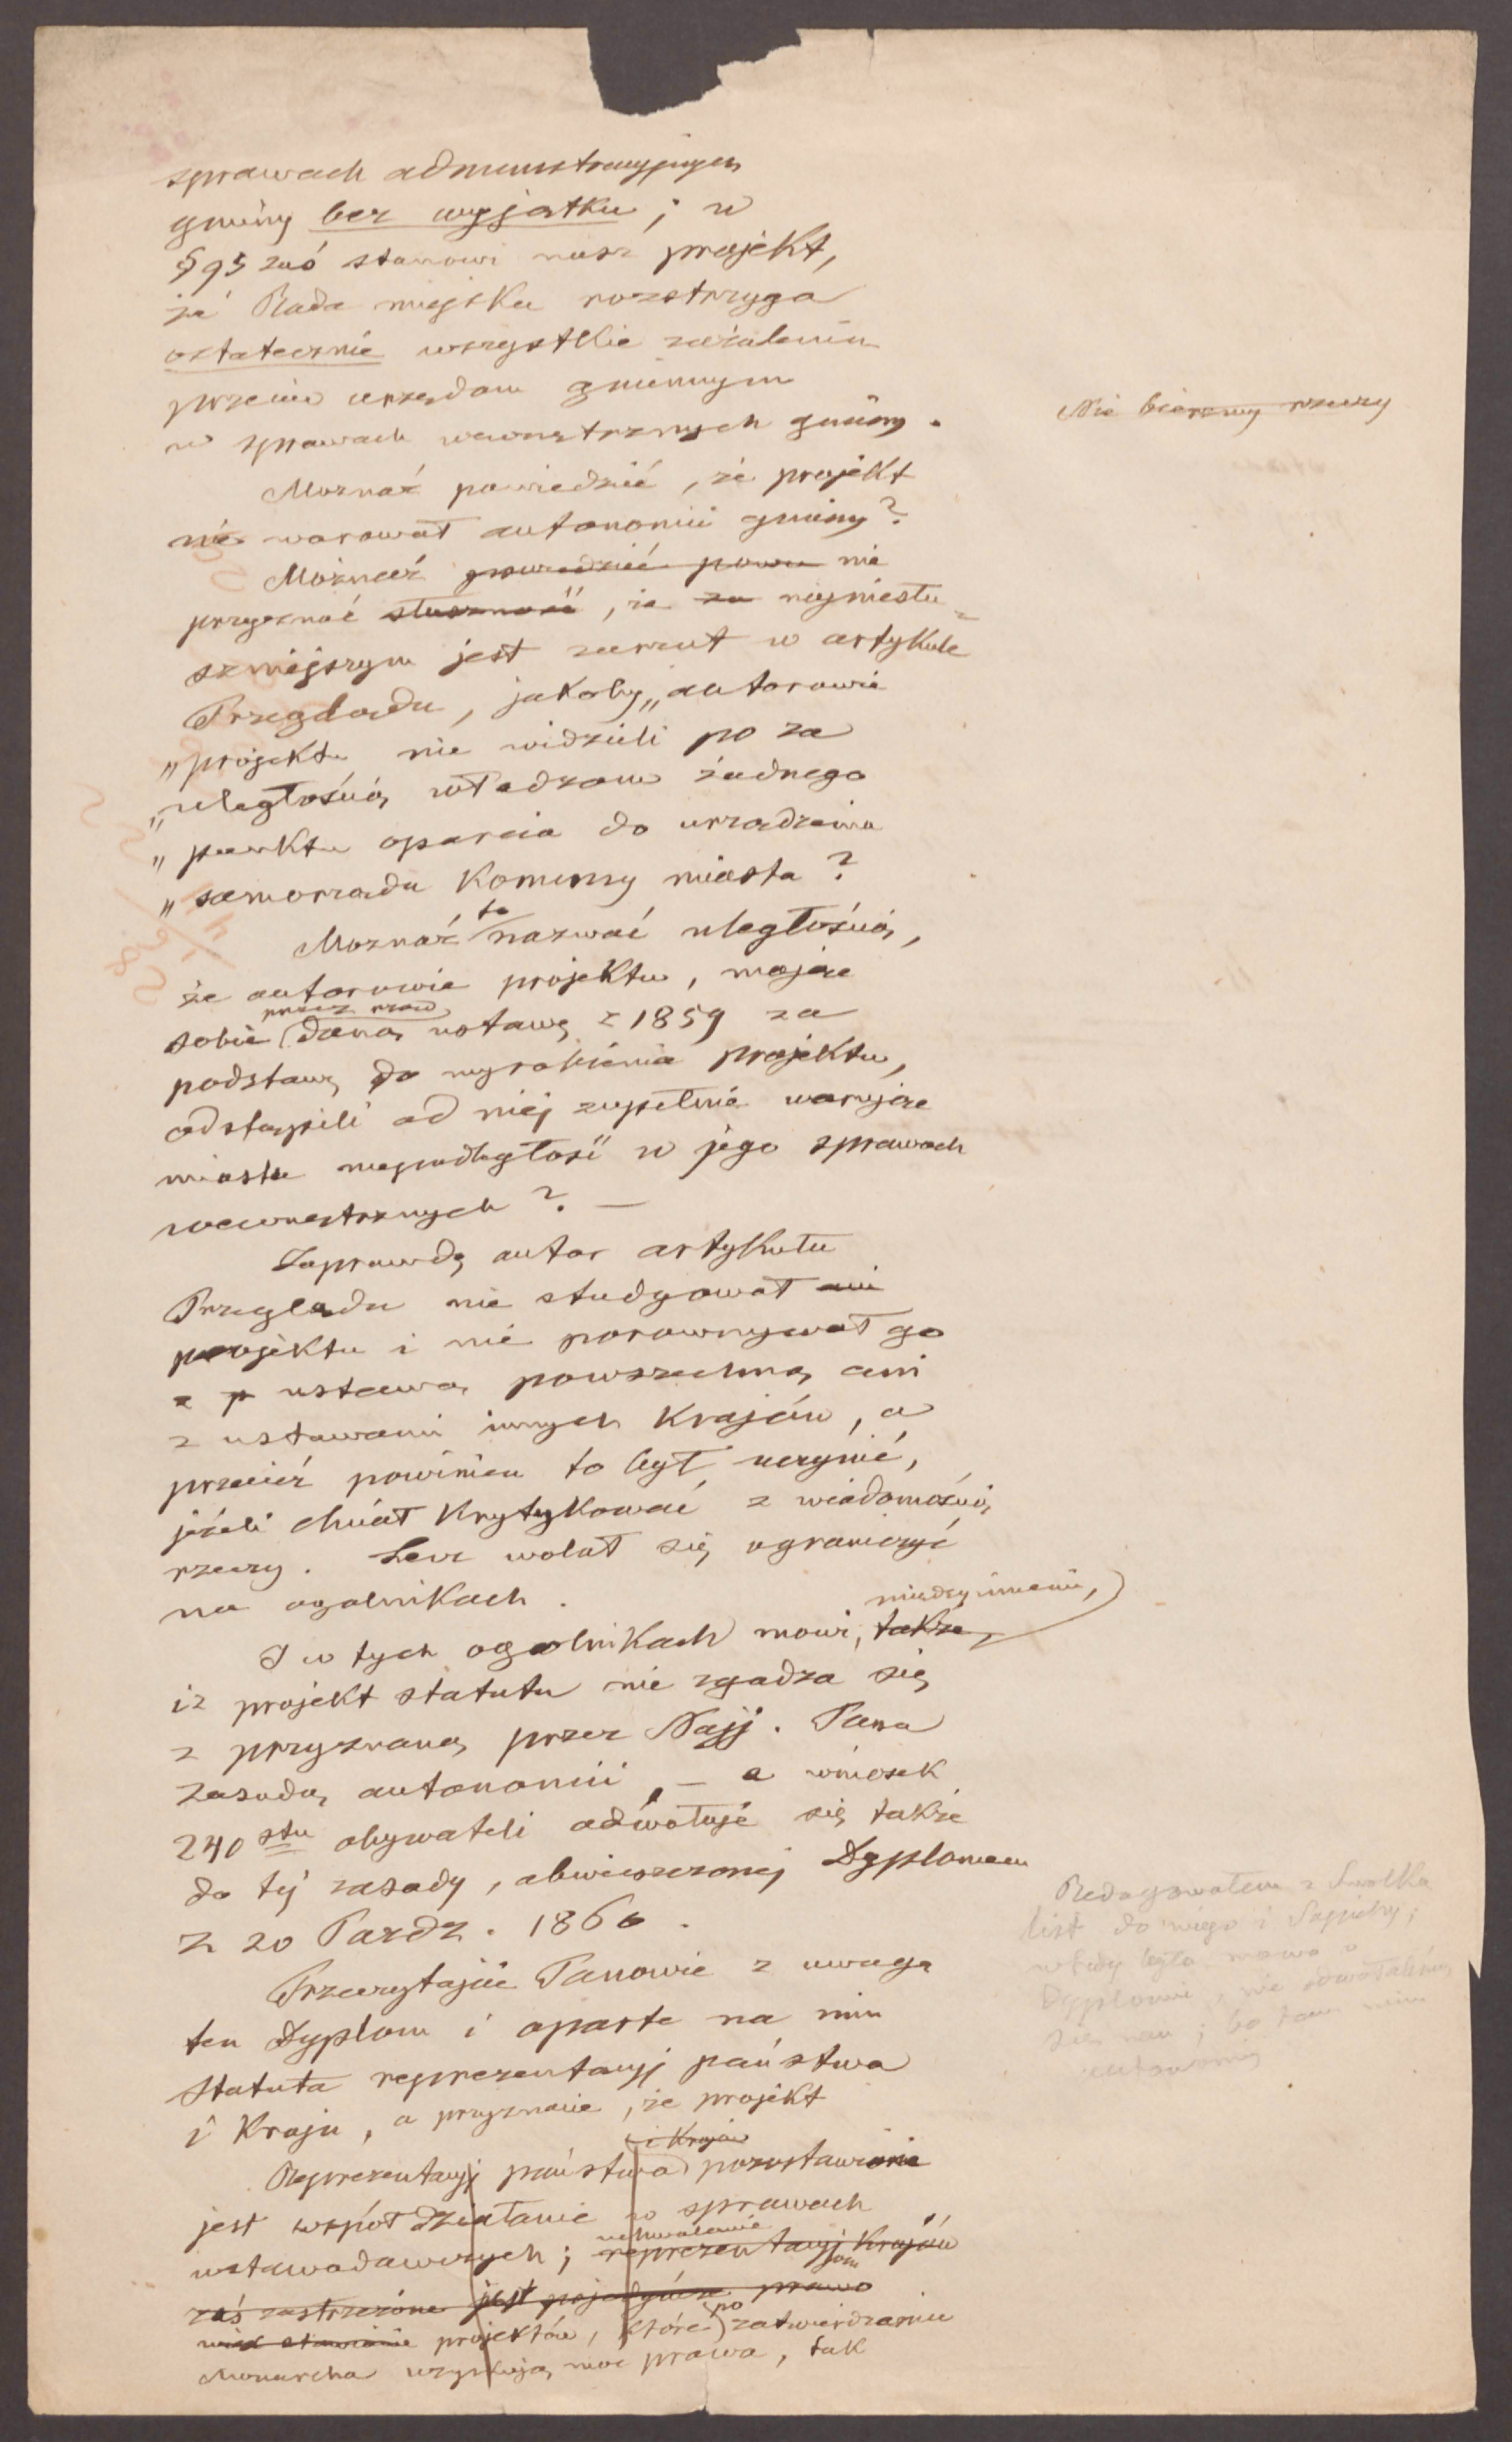 sprawach administracyjnych
gminy bez wyjątku; w
§ 95 zaś stanowi nasz projekt,
że Rada miejska rozstrzyga
ostatecznie wszystkie zażalenia
przeciw urzędom gminnym
w sprawach wewnętrznych gminy.
Nie bierzmy rzeczy
Moznaż powiedzieć, że projekt
nie warował autonomii gminy?
Możnaż powiedzieć nie
przyznać słuszność, że za najniesłu-
szniejszym jest zarzut w artykule
Przeglądu, jakoby „autorowie
„projektu nie widzieli po za
„uległością władzom żadnego
„punktu oparcia do urządzenia
„samorządu Komuny miasta?
Moznaż to nazwać uległością,
że autorowie projektu, mając
sobie przez rząd daną ustawę z 1859 za
podstawę do wyrobienia projektu,
odstąpili od niej zupełnie warując
miastu niepodległość w jego sprawach
wewnętrznych? —
Zaprawdę autor artykułu
Przeglądu nie studyował ani
projektu i nie porownywał go
z p ustawą powszechną ani
z ustawami innych Krajów, a
przecież powinien to był uczynić,
jeżeli chciał Krytykować z wiadomością
rzeczy. Lecz wolał się ograniczyć
na ogolnikach.
I w tych ogolnikach mowi, także, między innemi,
iż projekt statutu nie zgadza się
z przyznaną przez Najj. Pana
zasadą autonomii, — a wniosek
240 stu obywateli odwołuje się także
do téj zasady, obwieszczonej Dyplomem
z 20 Pazdz. 1860.
Redagowałem z Smolką
list do niego i Sapiehy;
wtedy była mowa o
Dyplomie, nie odwołaliśmy
się nań; bo tam niem
Przeczytajcie Panowie z uwagą
ten Dyplom i oparte na nim
Statuta reprezentacyj państwa
i Kraju, a przyznacie, że projekt
Reprezentacyj państwa i Krajów pozostawione
jest współdziałanie w sprawach
ustawodawczych; uchwalanie reprezentacyj Krajów
zaś zastrzeżone jest prawo
projektów, które po zatwierdzeniu
Monarcha uzyskują moc prawa, tak